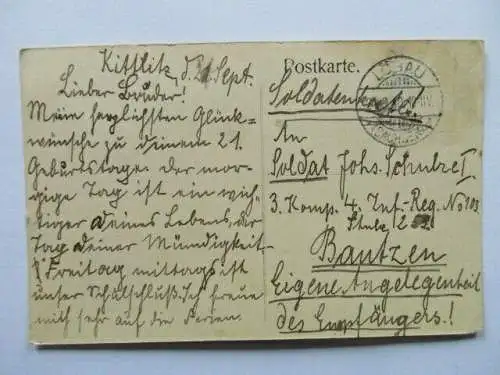 Kittlitz, d. 21. Sept.
Lieber Bruder!
Meine herzlichsten Glück-
wünsche zu deinem 21.
Geburtstage. der mor-
gige Tag ist ein wich-
tiger deines Lebens, der
Tag deiner Mündigkeit.
Freitag mittags ist
unser Schulschluß. Ich freue
mich sehr auf die Ferien.
Postkarte.
LÖBAU
Soldatenkarte!
An
Soldat Johs. Schulze I
3. Komp. 4. Inf-Reg. No 103
Stube
Bautzen
Eigene Angelegenheit
des Empfängers!